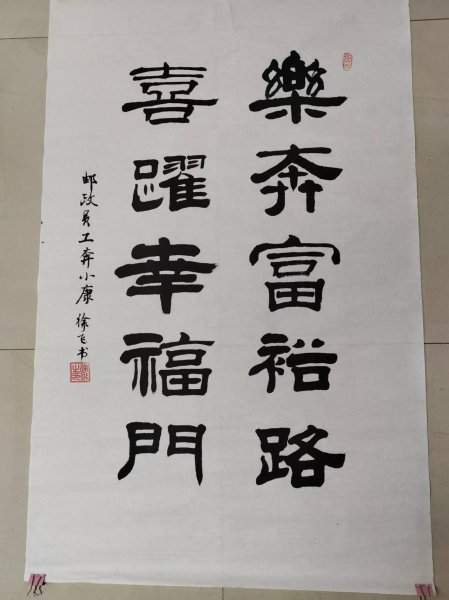 樂奔富裕路
喜躍幸福門
邮政员工奔小康 徐飞书